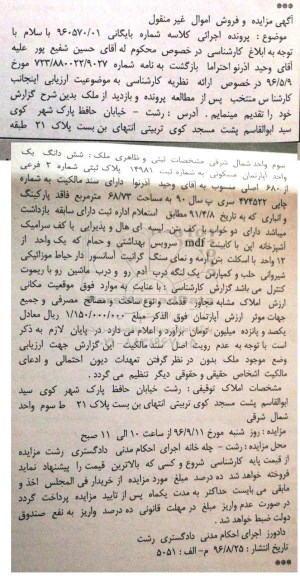 آگهی مزایده و فروش اموال غیر منقول
موضوع : پرونده اجرائی کلاسه شماره بایگانی ۹۶۰۵۷۰/۰۱ با سلام با
توجه به ابلاغ کارشناسی در خصوص محکوم له آقای حسین شفیع پور علیه
آقای وحید آذرنوا احتراما بازگشت به نامه شماره ۷۲۳/۸۸۰۰۲۲/۹۰۲۷ مورخ
۹۶/۵/۹ در خصوص ارائه نظریه کارشناسی به موضوعیت ارزیابی اینجانب
کارشناس منتخب پس از مطالعه پرونده و بازدید از ملک بدین شرح گزارش
خود را تقدیم مینمایم . آدرس : رشت - خیابان حافظ پارک شهر کوی
سید ابوالقاسم پشت مسجد کوی تربیتی انتهای بن بست پلاک ۲۱ طبقه
سوم واحد شمال شرقی مشخصات ثبتی و ظاهری ملک : شش دانگ یک
واحد آپارتمان مسکونی به شماره ثبت ۱۴۹۸۱ پلاک ثبتی شماره ۲ فرعی
از ۶۸۰ اصلی منسوب به آقای وحید آذرنوا دارای سند مالکیت به شماره
چاپی ۴۷۴۵۲۲ سری ب سال ۹۰ به مساحت ۶۸/۷۳ مترمربع فاقد پارکینگ
و انباری که به تاریخ ۹۱/۴/۸ مطابق استعلام اداره ثبت دارای سابقه بازداشت
میباشد دارای دو خواب کف بتن لیسه ای هال و پذیرایی با کف سرامیک
آشپزخانه اپن با کابینت mdf سرویس بهداشتی و حمام که یک واحد از
۱۲ واحد با اسکلت بتن آرمه و نمای سنگ گرانیت آسانسور دار حیاط موزائیکی
شیروانی حلب و کمپارس یک لنگه درب آدم رو و درب ماشین رو با ریموت
کنترل می باشد گزارش کارشناسی : با عنایت به موارد فوق موقعیت مکانی
ارزش املاک مشابه مجاور قدمت و نوع ساخت و مصالح مصرفی و جمیع
جهات موثر ارزش آپارتمان فوق الذکر مبلغ ۱/۱۵۰/۰۰۰/۰۰۰ ریال معادل
یکصد و پانزده میلیون تومان برآورد و اعلام می دارد در پایان لازم به ذکر
است با توجه به عدم رویت اصل سند مالکیت این گزارش جهت ارزیابی
وضع موجود ملک بدون در نظر گرفتن تعهدات دیون احتمالی و ادعای
مالکیت اشخاص حقیقی و حقوقی دیگر تنظیم می گردد .
مشخصات املاک توقیفی : رشت خیابان حافظ پارک شهر کوی سید
ابوالقاسم پشت مسجد کوی تربیتی انتهای بن بست پلاک ۲۱ ط سوم واحد
شمال شرقی
مزایده : روز شنبه مورخ ۹۶/۹/۱۱ از ساعت ۱۰ الی ۱۱ صبح
محل مزایده : رشت - چله خانه اجرای احکام مدنی دادگستری رشت مزایده
از قیمت پایه کارشناسی شروع و کسی که بالاترین قیمت را پیشنهاد نماید
فروخته خواهد شد ده درصد مبلغ مورد مزایده از خریدار فی المجلس اخذ و
مابقی می بایست حداکثر به مدت یکماه پس از تایید مزایده پرداخت گردد
در صورت عدم واریز مبلغ در مهلت قانونی ده درصد واریز به نفع صندوق
دولت ضبط خواهد شد .
دادورز اجرای احکام مدنی دادگستری رشت
تاریخ انتشار : ۹۶/۸/۲۵ م- الف : ۵۰۵۱